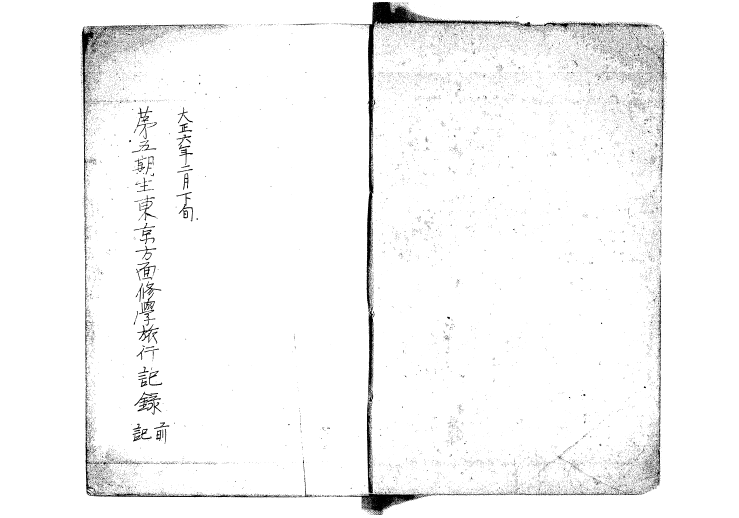 大正六年二月下旬
第五期生東京方面修學旅行記録
前記